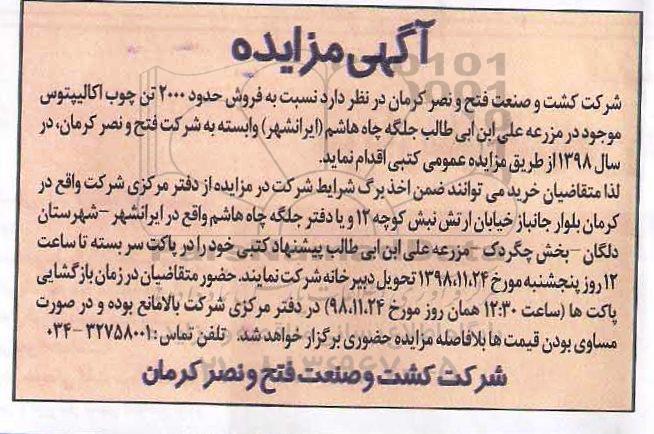 آگهی مزایده
شرکت کشت و صنعت فتح و نصر کرمان در نظر دارد نسبت به فروش حدود ۲۰۰۰ تن چوب اکالیپتوس
موجود در مزرعه علی ابن ابی طالب جلگه چاه هاشم (ایرانشهر) وابسته به شرکت فتح و نصر کرمان، در
سال ۱۳۹۸ از طریق مزایده عمومی کتبی اقدام نماید.
لذا متقاضیان خرید می توانند ضمن اخذ برگ شرایط شرکت در مزایده از دفتر مرکزی شرکت واقع در
کرمان بلوار جانباز خیابان ارتش نبش کوچه ۱۲ و یا دفتر جلگه چاه هاشم واقع در ایرانشهر -شهرستان
دلگان -بخش چگردک -مزرعه علی ابن ابی طالب پیشنهاد کتبی خود را در پاکت سر بسته تا ساعت
۱۲ روز پنجشنبه مورخ ۱۳۹۸،۱۱،۲۴ تحویل دبیرخانه شرکت نمایند. حضور متقاضیان در زمان بازگشایی
پاکت ها (ساعت ۱۲:۳۰ همان روز مورخ ۹۸،۱۱،۲۴) در دفتر مرکزی شرکت بالامانع بوده و در صورت
مساوی بودن قیمت ها بلافاصله مزایده حضوری برگزار خواهد شد. تلفن تماس : ۳۲۷۵۸۰۰۱ - ۰۳۴
شرکت کشت و صنعت فتح و نصر کرمان